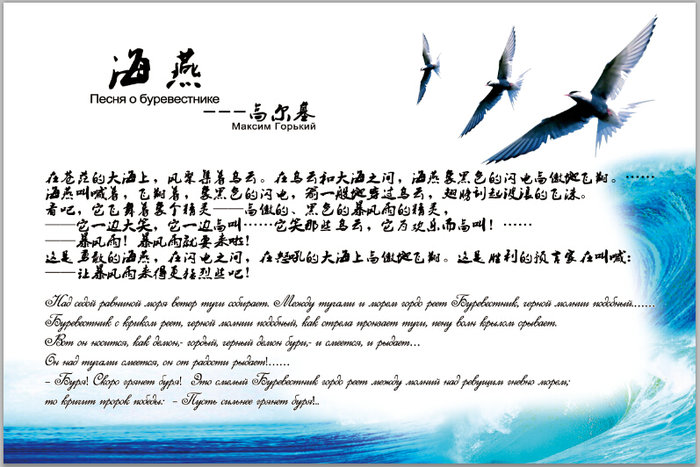 海燕
Песня о буревестнике
---高尔基
Максим Горький
在苍茫的大海上，风聚集着乌云。在乌云和大海之间，海燕象黑色的闪电高傲地飞翔。……
海燕叫喊着，飞翔着，象黑色的闪电，箭一般地穿过乌云，翅膀刮起波浪的飞沫。
看吧，它飞舞着象个精灵——高傲的、黑色的暴风雨的精灵，
——它一边大笑，它一边高叫……它笑那些乌云，它为欢乐而高叫！……
——暴风雨！暴风雨就要来啦！
这是勇敢的海燕，在闪电之间，在怒吼的大海上高傲地飞翔。这是胜利的预言家在叫喊：
——让暴风雨来得更猛烈些吧！
Над седой равниной моря ветер туги собирает. Между тугами и морем гордо реет Буревестник, герной молнии подобный.......
Буревестник с криком реет, герной молнии подобный, как стрела пронзает туги, пену волн крылом срывает.
Вот он носится, как демон,- гордый, герный демон бури,- и смеется, и рыдает...
Он над тугами смеется, он от радости рыдает!.......
- Буря! Скоро грянет буря! Это смелый Буревестник гордо реет между молний над ревущим гневно морем;
то кригит пророк победы: - Пусть сильнее грянет буря!..